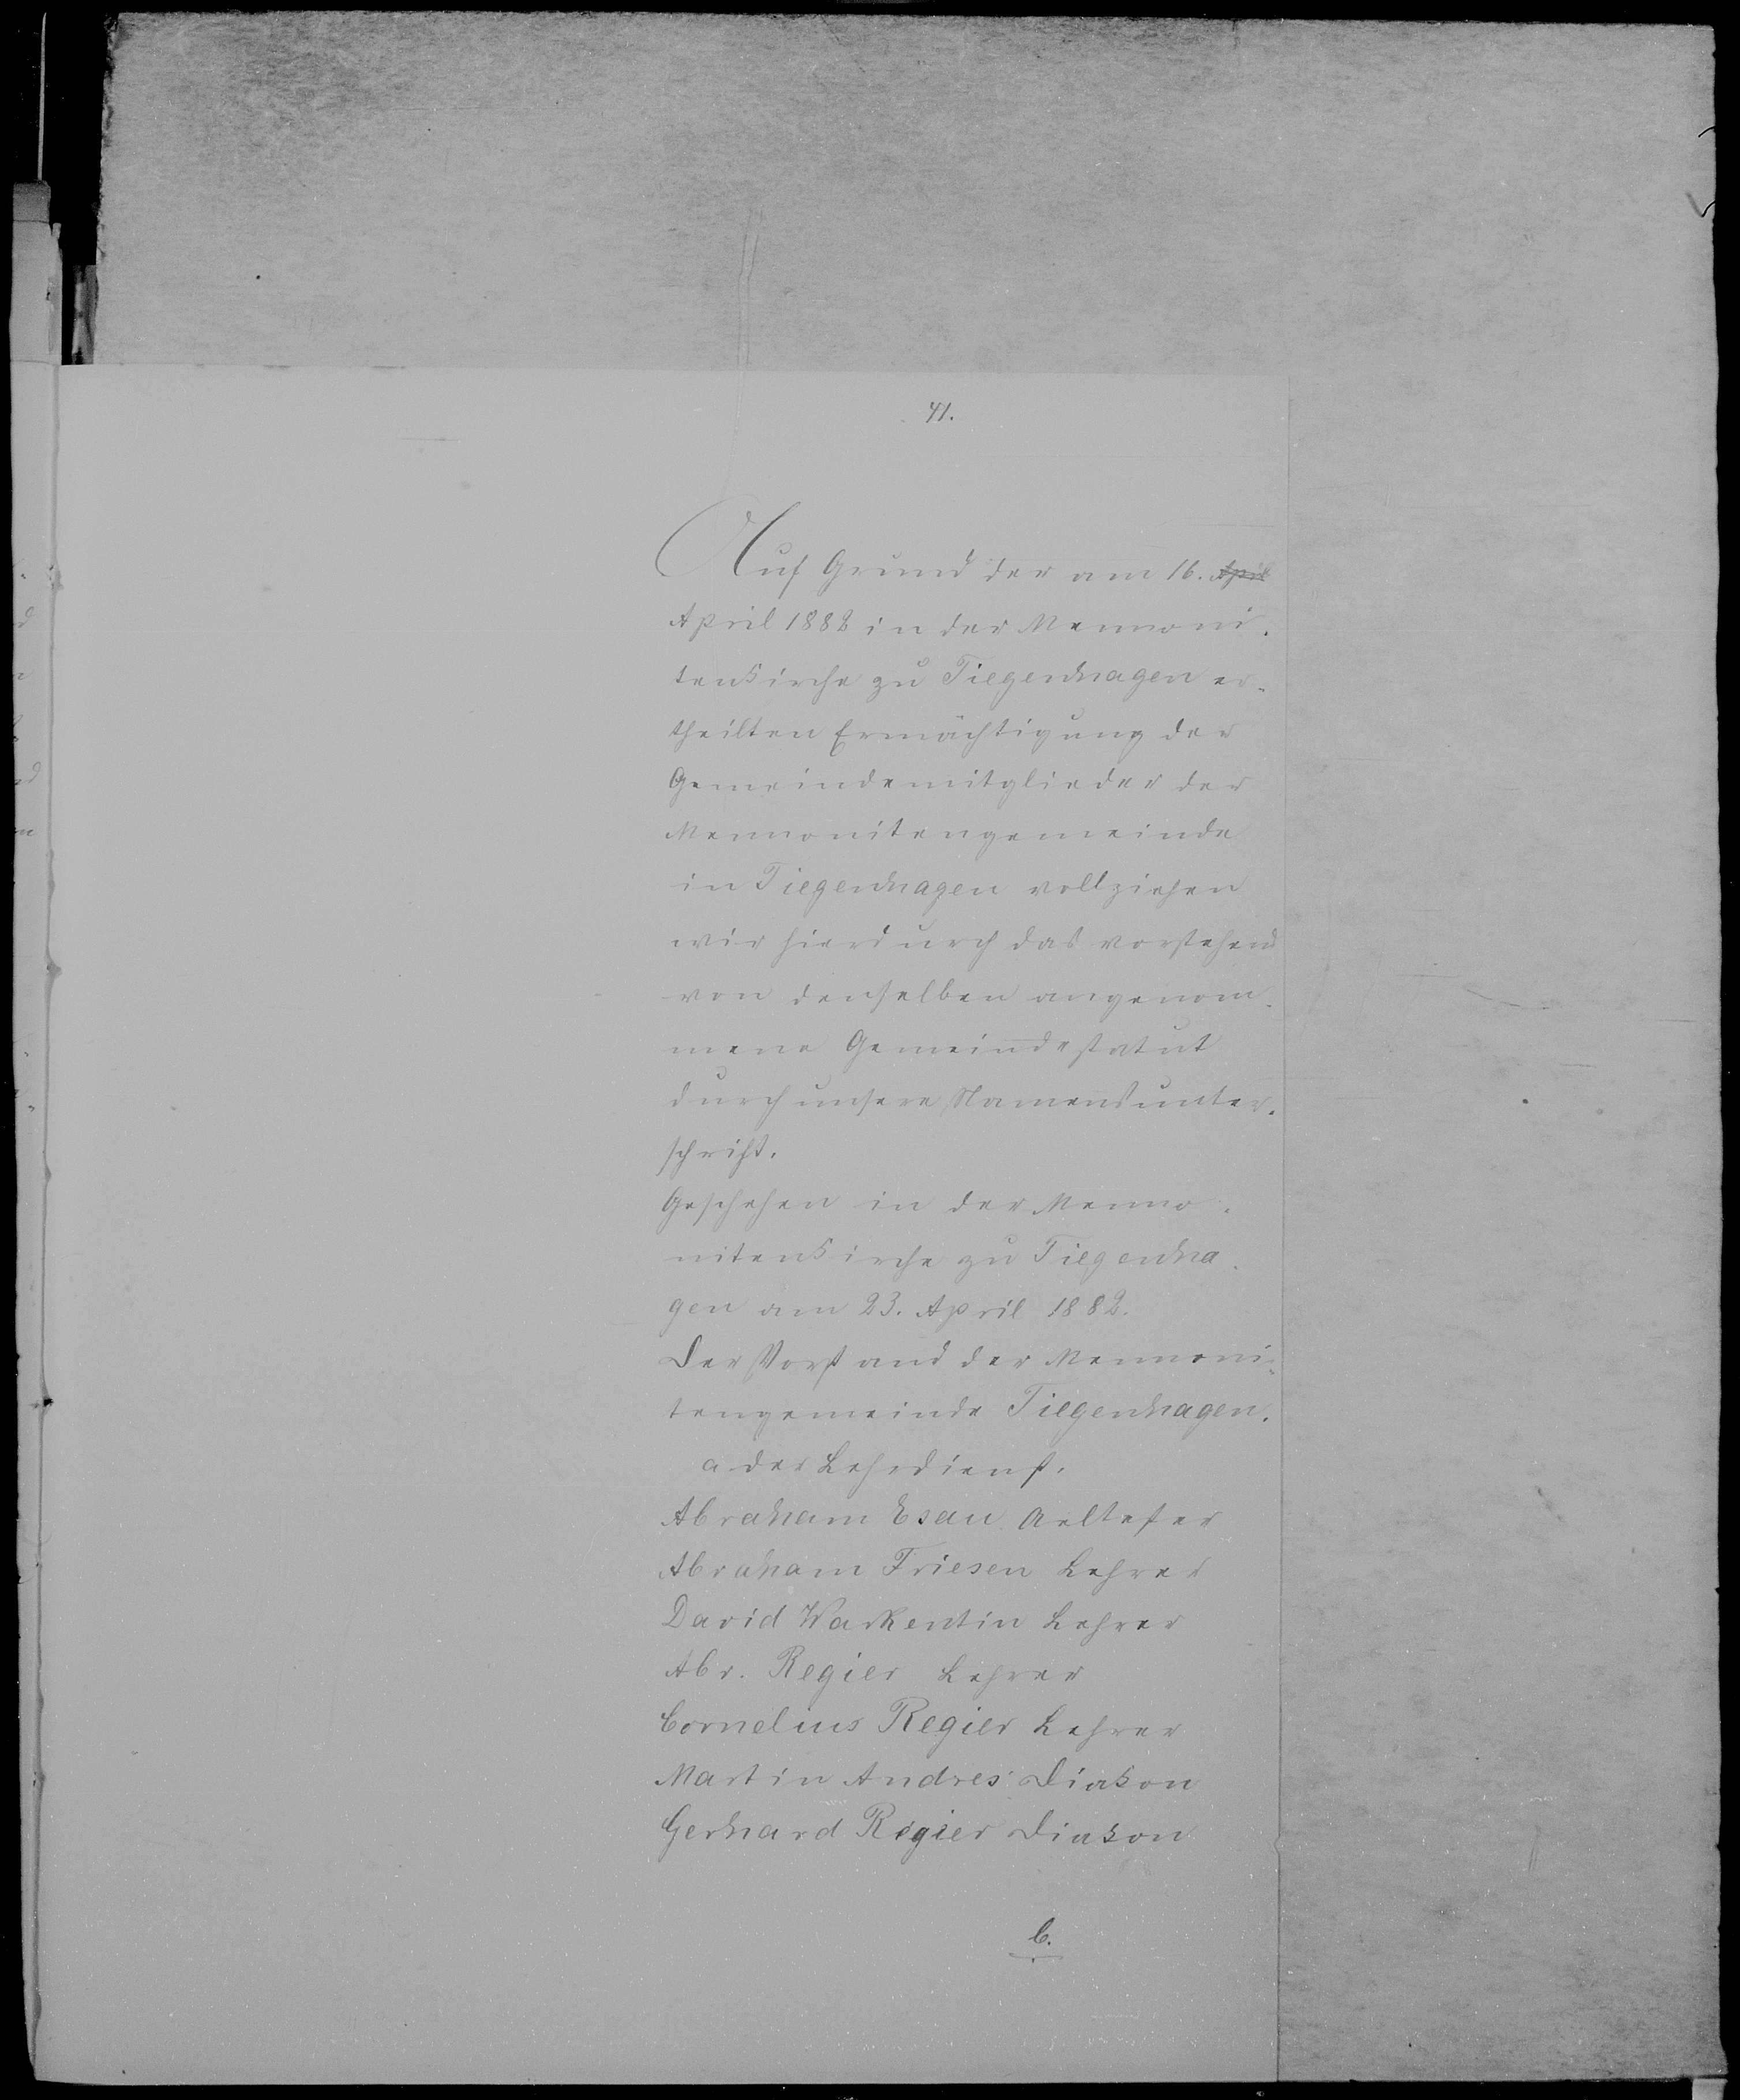 41.
Auf Grund der am 16. April
April 1882 in der Mennoni-
tenkirche zu Tiegenhagen er-
theilten Ermächtigung der
Gemeindemitglieder der
Mennonitengemeinde
in Tiegenhagen vollziehen
wir hierdurch das vorstehend
von denselben angenom-
mene Gemeindestatut
durch unsere Namensunter-
schrift.
Geschehen in der Menno-
nitenkirche zu Tiegenha-
gen am 23. April 1882.
Der Vorstand der Mennoni-
tengemeinde Tiegenhagen.
a der Lehrdienst.
Abraham Esau Aeltester
Abraham Friesen Lehrer
David Warkentin Lehrer
Abr. Regier Lehrer
Cornelius Regier Lehrer
Martin Andres Diakon
Gerhard Regier Diakon
b.